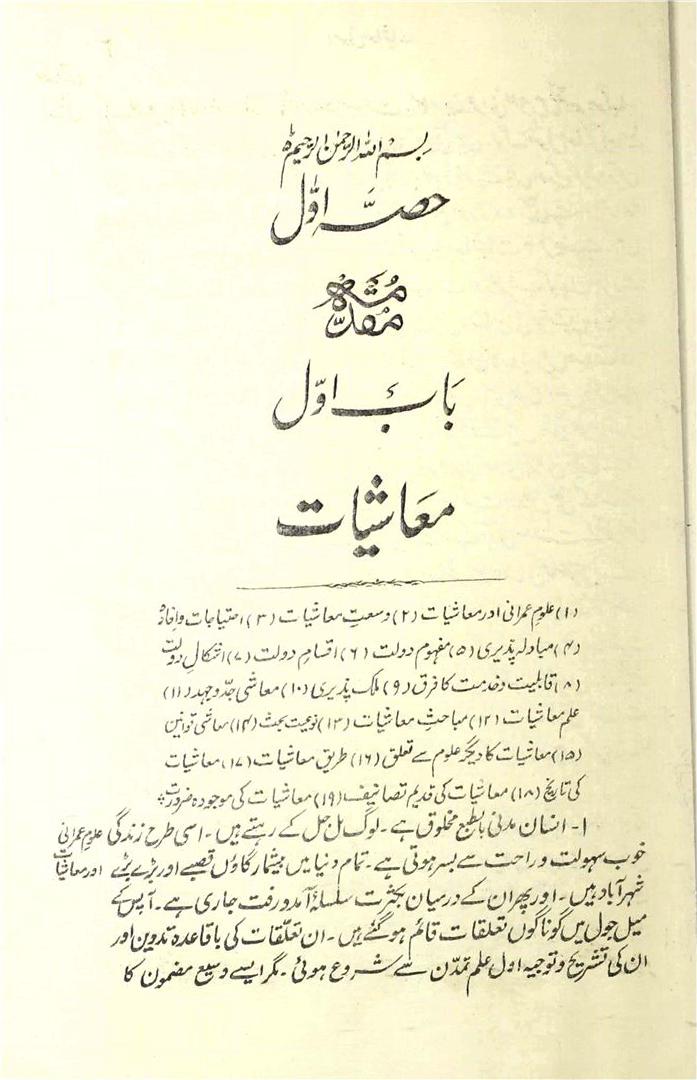 بسم اللہ الرحمٰن الرحیم ؕ
حصہ اوّل
مقدمہ
باب اوّل
معاشیات
(۱) علوم عمرانی اور معاشیات (۲) وسعتِ معاشیات (۳) احتیاجات و افادہ
(۴) مبادلہ پذیری (۵) مفہوم دولت (۶) اقسام دولت (۷) اشکالِ دولت
(۸) قابلیت و خدمت کا فرق (۹) ملک پذیری (۱۰) معاشی جدّ و جہد (۱۱)
علم معاشیات (۱۲) مباحثِ معاشیات (۱۳) نوعیت بحث (۱۴) معاشی قوانین
(۱۵) معاشیات کا دیگر علوم سے تعلق (۱۶) طریق معاشیات (۱۷) معاشیات
کی تاریخ (۱۸) معاشیات کی قدیم تصانیف (۱۹) معاشیات کی موجودہ ضرورت
۱- انسان مدنی بالطبع مخلوق ہے۔ لوگ مل جل کے رہتے ہیں۔ اسی طرح زندگی علوم عمرانی
خوب سہولت و راحت سے بسر ہوتی ہے۔ تمام دنیا میں بیشمار گاؤں قصبے اور بڑے بڑے اور معاشیات
شہر آباد ہیں۔ اور پھر ان کے درمیان بکثرت سلسلۂ آمد و رفت جاری ہے۔ آپس کے
میل جول میں گوناگوں تعلقات قائم ہو گئے ہیں۔ ان تعلّقات کی باقاعدہ تدوین اور
ان کی تشریح و توجیہ اول علم تمدّن سے شروع ہوئی۔ مگر ایسے وسیع مضمون کا